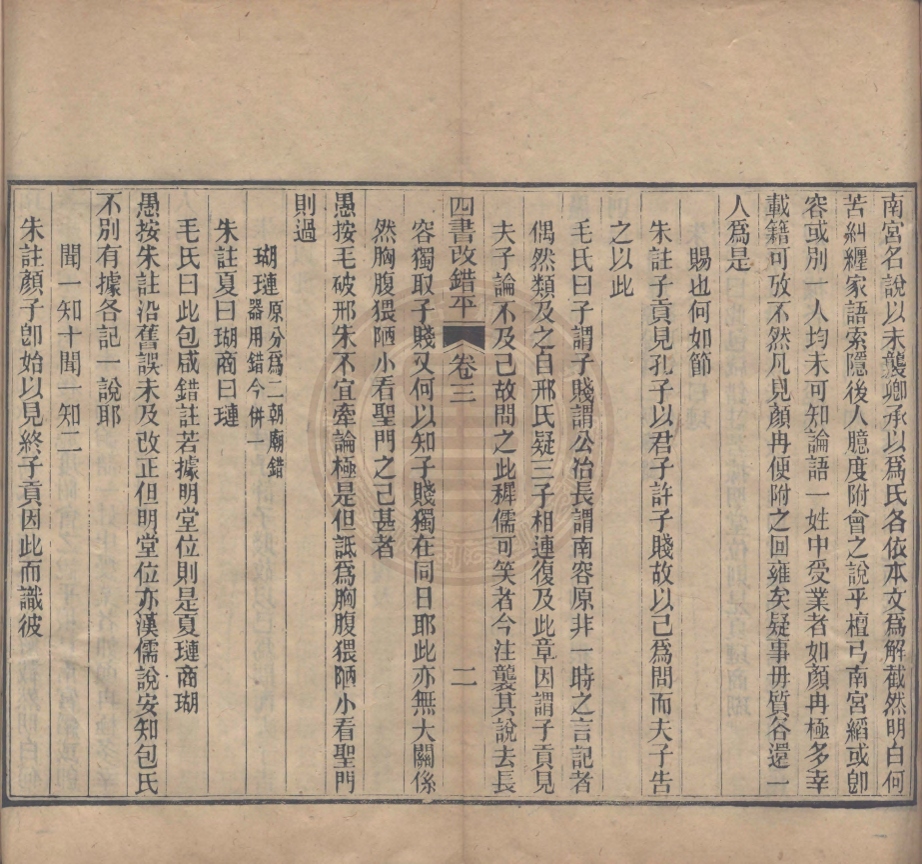 南宮名說以未襲卿承以爲氏各依本文爲解截然明白何
苦糾纏家語索隱後人臆度附會之說乎檀弓南宮縚或卽
容或別一人均未可知論語一姓中受業者如顏冉極多幸
載籍可攷不然凡見顏冉便附之回雍矣疑事毋質各還一
人爲是
賜也何如節
朱註子貢見孔子以君子許子賤故以己爲問而夫子告
之以此
毛氏曰子謂子賤謂公冶長謂南容原非一時之言記者
偶然類及之自邢氏疑三子相連復及此章因謂子貢見
夫子論不及己故問之此穉儒可笑者今注襲其說去長
四書改錯平 卷三 二
容獨取子賤又何以知子賤獨在同日耶此亦無大關係
然胸腹猥陋小看聖門之已甚者
愚按毛破邢朱不宜牽論極是但詆爲胸腹猥陋小看聖門
則過
瑚璉原分爲二朝廟錯
器用錯今併一
朱註夏曰瑚商曰璉
毛氏曰此包咸錯註若據明堂位則是夏璉商瑚
愚按朱註沿舊誤未及改正但明堂位亦漢儒說安知包氏
不別有據各記一說耶
聞一知十聞一知二
朱註顏子卽始以見終子貢因此而識彼